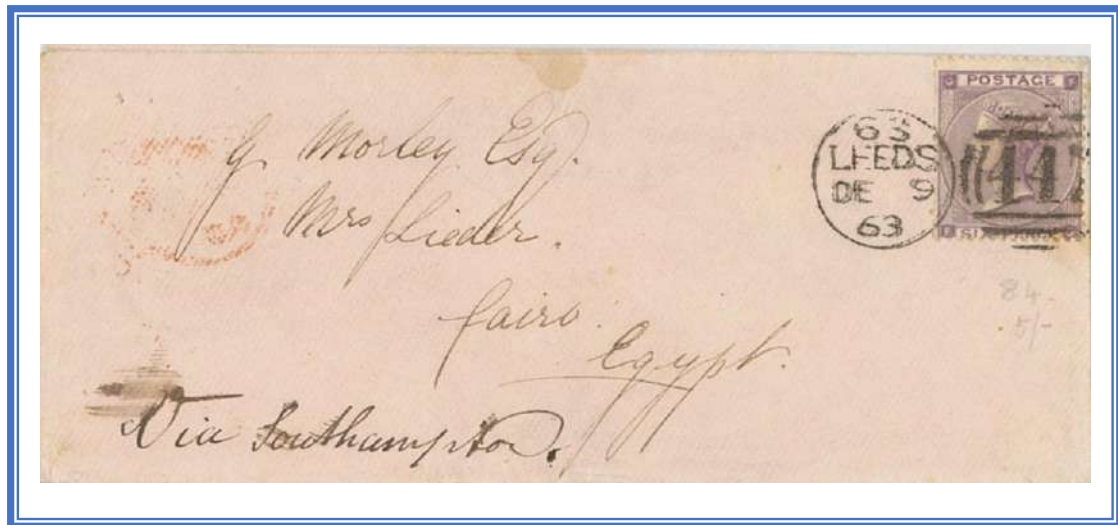 G. Morley Esq.
Mrs Lieder.
Cairo.
Egypt.
Via Southampton.
63
LEEDS
DE 9
63
POSTAGE
SIX PENCE
447
84
5/-